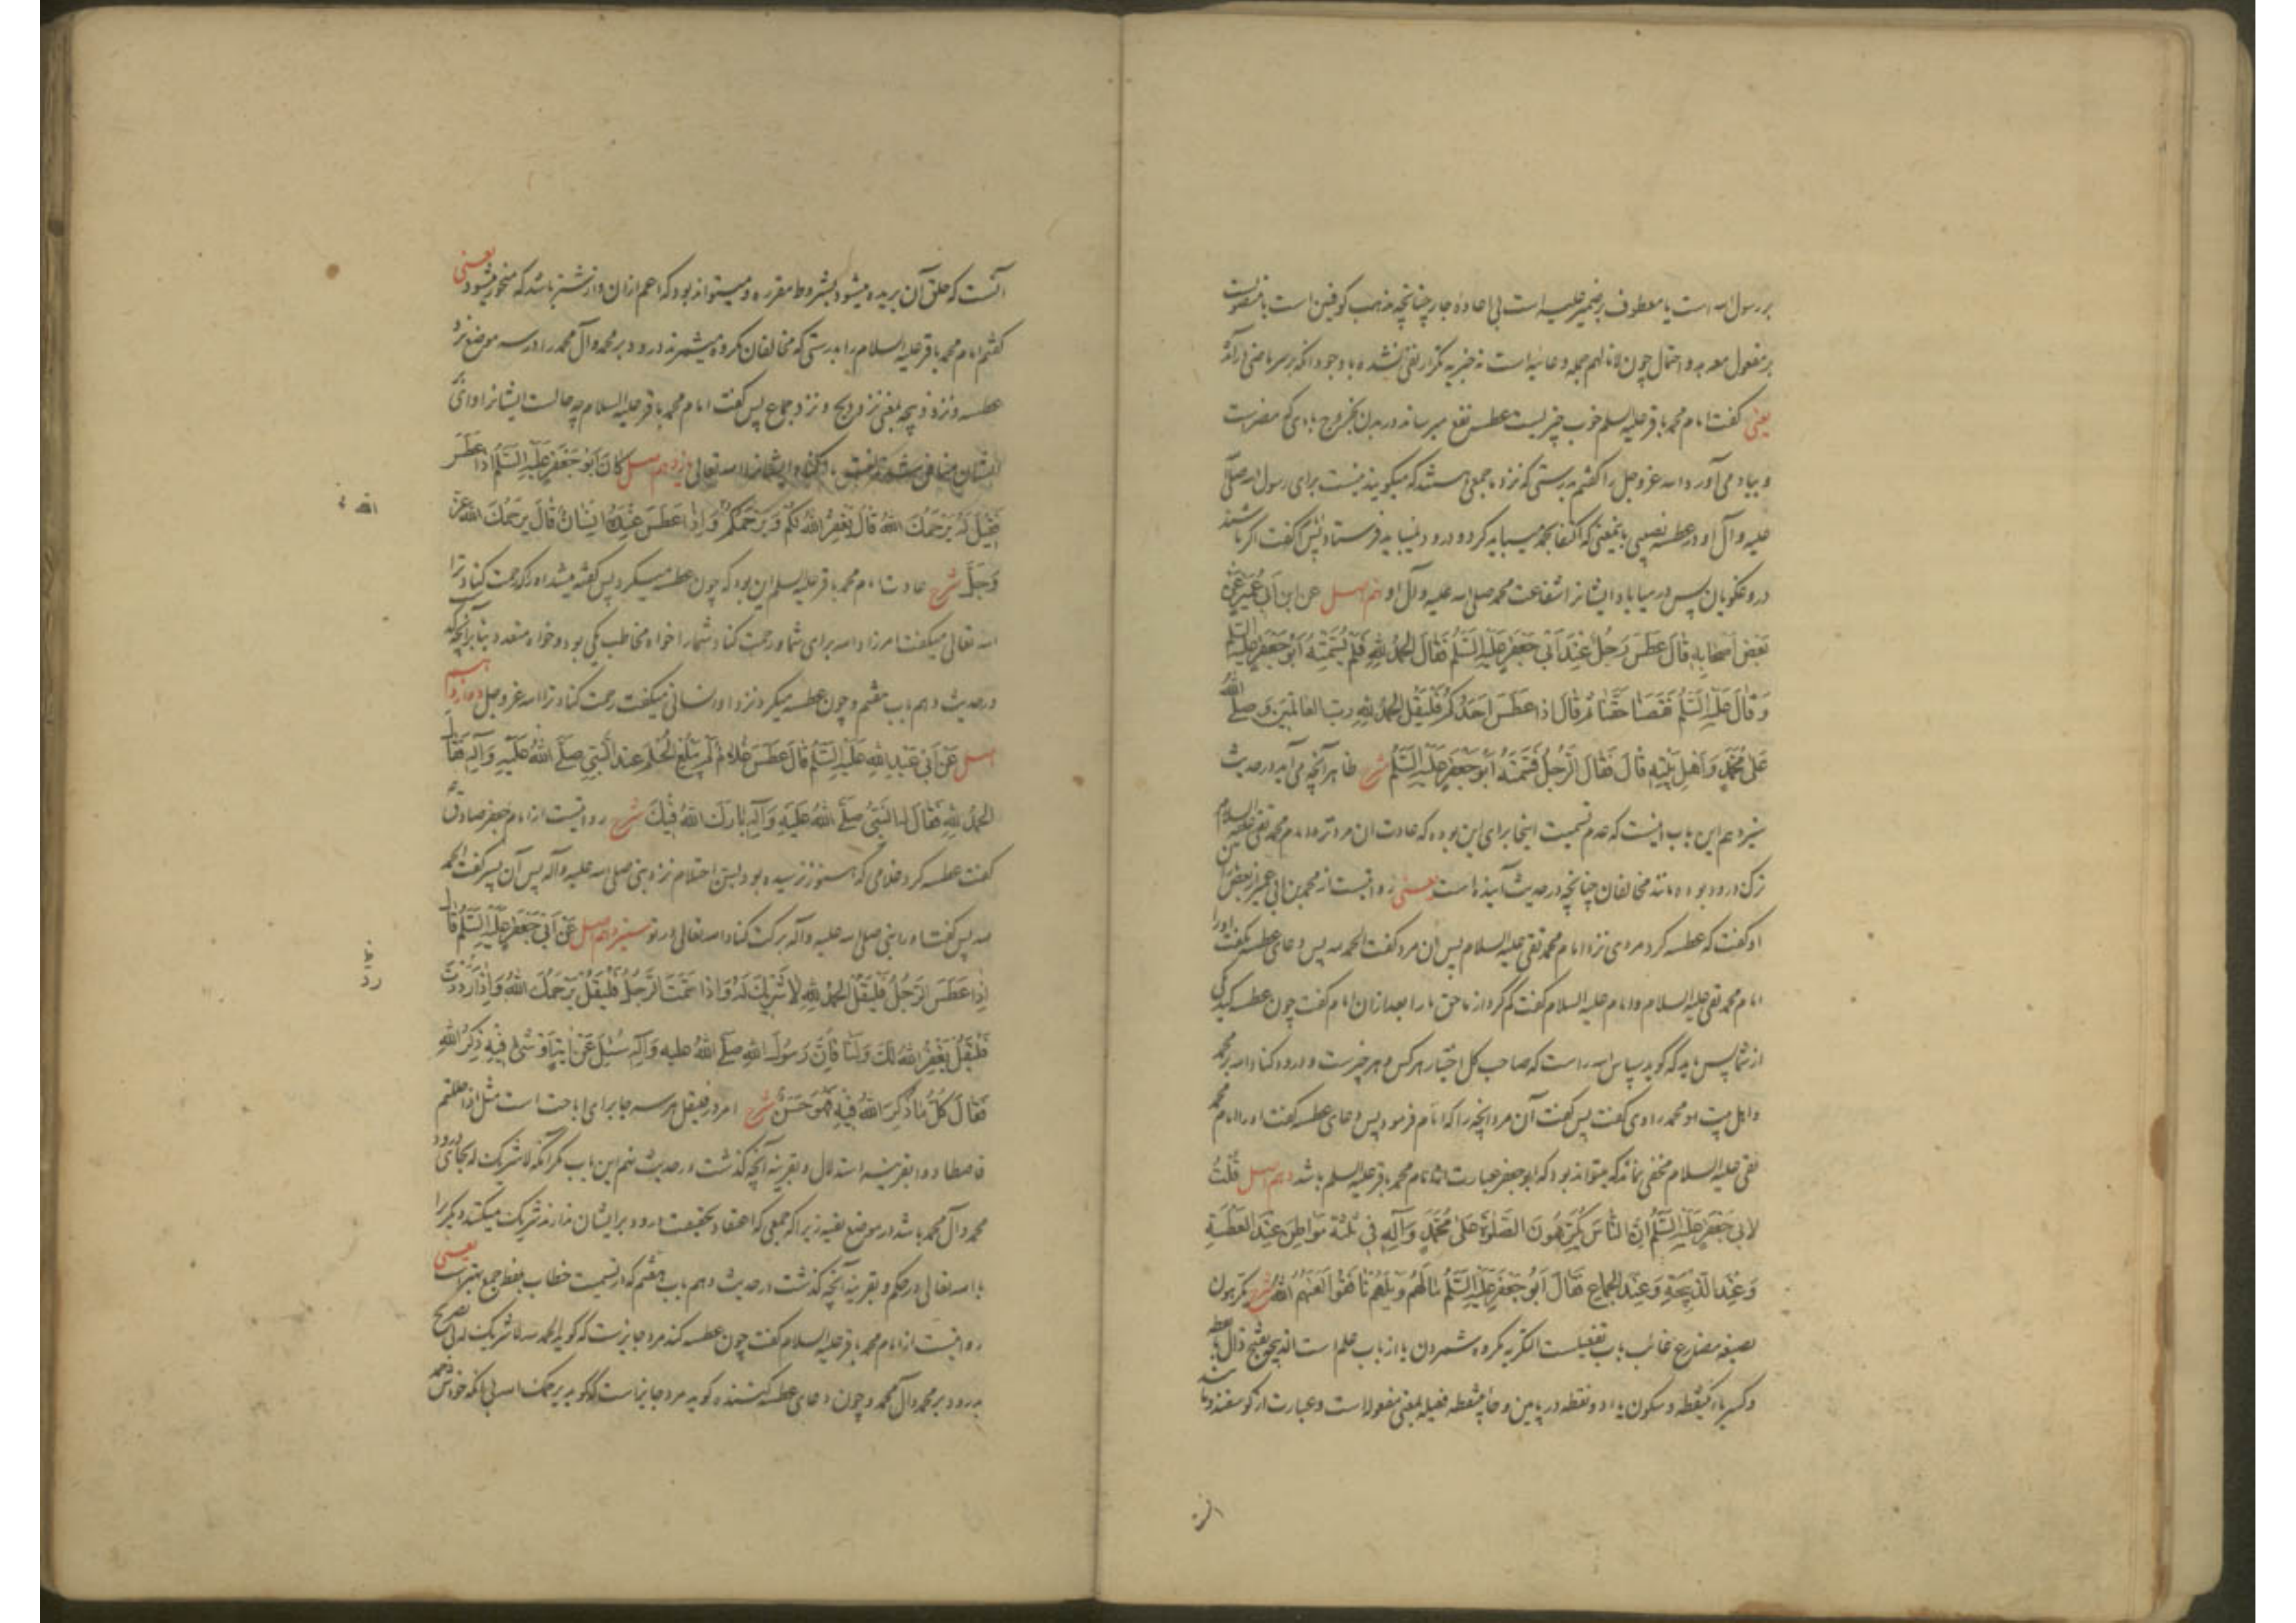 بر رسول الله است یا معطوف بر ضمیر علیه است بی اعادهٔ جار چنانچه مذهب کوفیین است یا منصوبست
بر مفعول معه و احتمال چون لا نالهم جمله دعائیه است نه خبریه تکرار نفی نشده با وجود آنکه بر سر ماضی درآمد
یعنی گفت امام محمد باقر علیه السلم خوب چیزیست عطسه نفع میرساند در بدن بخروج بادی که مضر است
و بیاد می آورد الله عز و جل را گفتم بدرستی که نزد ما جمعی هستند که میگویند نیست برای رسول الله صلی
علیه و آل او در عطسه نصیبی باینمعنی که اکتفا بحمد میباید کرد و درود نمیباید فرستاد پس گفت اگر باشند
دروغگویان پس در میاباد ایشانرا شفاعت محمد صلی الله علیه و آل او نهم اصل عن ابن ابی عمیر عن
بَعْضِ اَصْحَابِهِ قَالَ عَطَسَ رَجُلٌ عِنْدَ اَبِی جَعْفَرٍ عَلَیْهِ السَّلَمُ فَقَالَ الْحَمْدُ لِلّٰهِ فَلَمْ یُسَمِّتْهُ اَبُو جَعْفَرٍ عَلَیْهِ السلم
وَ قَالَ عَلَیْهِ السَّلَمُ نَقَصَنَا حَقَّنَا ثُمَّ قَالَ اِذَا عَطَسَ اَحَدُکُمْ فَلْیَقُلْ الْحَمْدُ لِلّٰهِ رَبِّ الْعَالَمِینَ وَ صَلَّی اللّٰهُ
عَلٰی مُحَمَّدٍ وَ اَهْلِ بَیْتِهِ قَالَ فَقَالَ الرَّجُلُ فَسَمَّتَهُ اَبُو جَعْفَرٍ عَلَیْهِ السَّلَمُ شرح ظاهر آنچه می آید در حدیث
سیزدهم این باب اینست که عدم تسمیت اینجا برای این بوده که عادت آن مرد نزد امام محمد تقی علیه السلام
ترک درود بوده مانند مخالفان چنانچه در حدیث آینده است یعنی روایتست از محمد بن ابی عمیر از بعض
او گفت که عطسه کرد مردی نزد امام محمد تقی علیه السلام پس آن مرد گفت الحمد لله پس دعای عطسه نگفت او را
امام محمد تقی علیه السلام و امام علیه السلام گفت کم کرد از ما حق ما را بعد از آن امام گفت چون عطسه کند یکی
از شما پس باید که گوید سپاس الله راست که صاحب کل اختیار هر کس و هر چیز است و درود کناد الله بر محمد
و اهل بیت او محمد راوی گفت پس گفت آن مرد آنچه را که امام فرمود پس دعای عطسه گفت او را امام محمد
تقی علیه السلام مخفی نماند که میتواند بود که ابو جعفر عبارت از امام محمد باقر علیه السلم باشد دهم اصل قُلْتُ
لِاَبِی جَعْفَرٍ عَلَیْهِ السَّلَمُ اِنَّ النَّاسَ یُکَرِّهُونَ الصَّلٰوةَ عَلٰی مُحَمَّدٍ وَ آلِهِ فِی ثَلٰثَةِ مَوَاطِنَ عِنْدَ الْعَطْسَةِ
وَ عِنْدَ الذَّبِیحَةِ وَ عِنْدَ الْجِمَاعِ فَقَالَ اَبُو جَعْفَرٍ عَلَیْهِ السَّلَمُ مَا لَهُمْ وَیْلَهُمْ نَافَقُوا لَعَنَهُمُ اللّٰهُ شرح یکرهون
بصیغه مضارع غائب باب تفعیلست التکریه مکروه شمردن یا از باب علم است الذبیحه بفتح ذال با نقطه
و کسر باء یکنقطه و سکون یاء دو نقطه در پایین و حاء بینقطه فعیله بمعنی مفعوله است و عبارت از گوسفند و مانند
آنست که حلق آن بریده میشود بشروط مقرره و میتواند بود که اعم از آن و از شتر باشد که منحور میشود یعنی
گفتم امام محمد باقر علیه السلام را بدرستی که مخالفان مکروه میشمرند درود بر محمد و آل محمد را در سه موضع نزد
عطسه و نزد ذبیحه یعنی نزد ذبح و نزد جماع پس گفت امام محمد باقر علیه السلام چه حالست ایشانرا وای
ایشان منافق شدند لعنت کناد ایشانرا الله تعالی یازدهم اصل کَانَ اَبُو جَعْفَرٍ عَلَیْهِ السَّلَمُ اِذَا عَطَسَ
فَقِیلَ لَهُ یَرْحَمُکَ اللّٰهُ قَالَ یَغْفِرُ اللّٰهُ لَکُمْ وَ یَرْحَمُکُمْ وَ اِذَا عَطَسَ عِنْدَهُ اِنْسَانٌ قَالَ یَرْحَمُکَ اللّٰهُ عَزَّ
وَ جَلَّ شرح عادت امام محمد باقر علیه السلم این بود که چون عطسه میکرد پس گفته میشد او را که رحمت کناد ترا
الله تعالی میگفت امرزاد الله برای شما و رحمت کناد شمار اخواه مخاطب یکی بود و خواه متعدد بنا بر آنچه گذشت
در حدیث دهم باب هفتم و چون عطسه میکرد نزد او انسانی میگفت رحمت کناد ترا الله عز و جل دوازدهم
اصل عَنْ اَبِی عَبْدِ اللّٰهِ عَلَیْهِ السَّلَمُ قَالَ عَطَسَ غُلَامٌ لَمْ یَبْلُغِ الْحُلُمَ عِنْدَ النَّبِیِّ صَلَّی اللّٰهُ عَلَیْهِ وَ آلِهِ فَقَالَ
الْحَمْدُ لِلّٰهِ فَقَالَ لَهُ النَّبِیُّ صَلَّی اللّٰهُ عَلَیْهِ وَ آلِهِ بَارَکَ اللّٰهُ فِیکَ شرح روایتست از امام جعفر صادق ع
گفت عطسه کرد غلامی که هنوز نرسیده بود بسن احتلام نزد نبی صلی الله علیه و آله پس آن پسر گفت الحمد
لله پس گفت او را نبی صلی الله علیه و آله برکت کناد الله تعالی در تو سیزدهم اصل عَنْ اَبِی جَعْفَرٍ عَلَیْهِ السَّلَمُ قَالَ
اِذَا عَطَسَ الرَّجُلُ فَلْیَقُلْ الْحَمْدُ لِلّٰهِ لَا شَرِیکَ لَهُ وَ اِذَا سَمَّتَ الرَّجُلُ فَلْیَقُلْ یَرْحَمُکَ اللّٰهُ وَ اِذَا رَدَدْتَ
فَلْیَقُلْ یَغْفِرُ اللّٰهُ لَکَ وَ لَنَا فَاِنَّ رَسُولَ اللّٰهِ صَلَّی اللّٰهُ علیه وَ آلِهِ سُئِلَ عَنْ آیَةٍ اَوْ شَیْءٍ فِیهِ ذِکْرُ اللّٰهِ
فَقَالَ کُلُّ مَا ذُکِرَ اللّٰهُ فِیهِ فَهُوَ حَسَنٌ شرح امر در فلیقل هر سه جا برای اباحت است مثل اذا حللتم
فاصطادوا بقرینه استدلال و بقرینه آنچه گذشت در حدیث نهم این باب مگر آنکه لا شریک له بجای درود
محمد و آل محمد باشد در موضع تقیه زیرا که جمعی که اعتقاد بحقیقت درود بر ایشان ندارند شریک میکنند دیگر را
با الله تعالی در حکم و بقرینه آنچه گذشت در حدیث دهم باب هفتم که در تسمیت خطاب بلفظ جمع بهتر است یعنی
روایتست از امام محمد باقر علیه السلام گفت چون عطسه کند مرد جایزست که گوید الحمد لله لا شریک له بی تصریح
بدرود بر محمد و آل محمد و چون دعای عطسه کننده گوید مرد جایز است که گوید یرحمک الله بی آنکه خودش